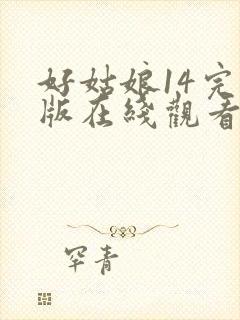 好姑娘14完
版在綫觀看
罕青